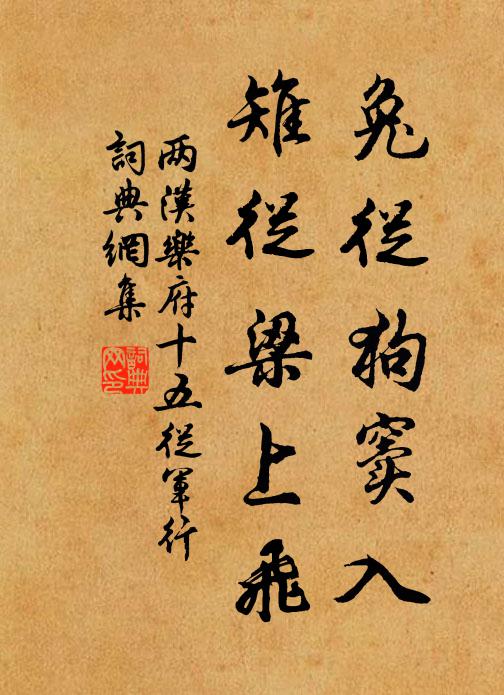 兔從狗竇入
雉從梁上飛
两漢樂府十五從軍行
詞典網集
詞典网印